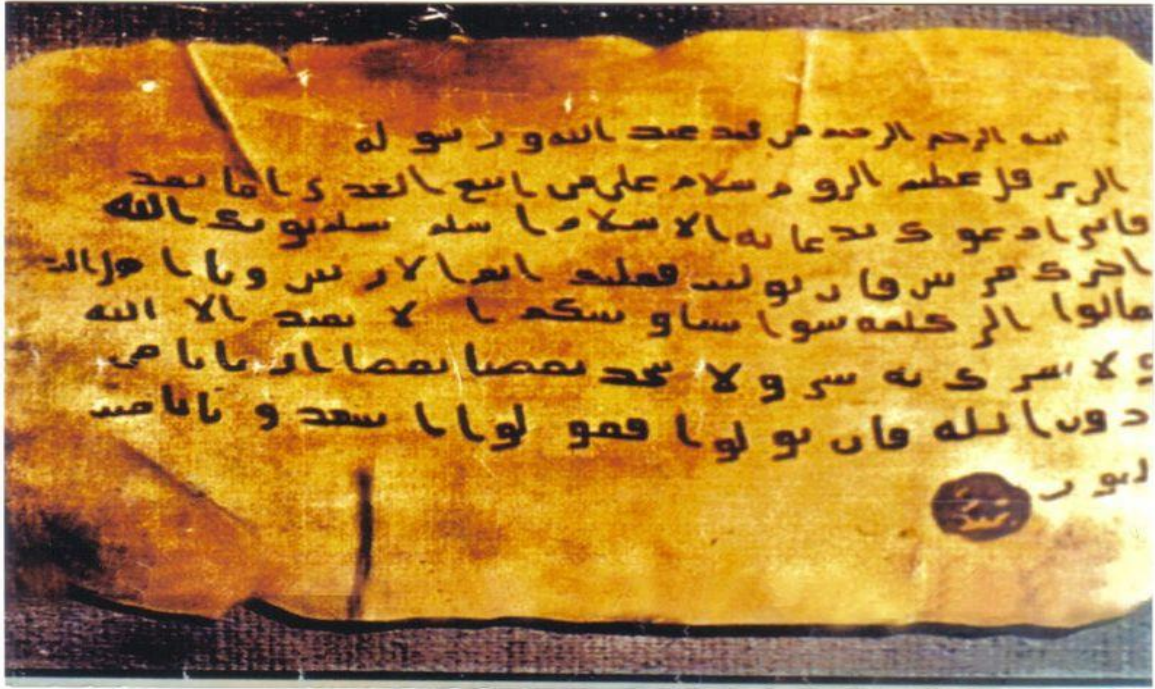 بسم الله الرحمن الرحيم من محمد عبد الله و رسوله
الى هرقل عظيم الروم سلام على من اتبع الهدى اما بعد
فانى ادعوك بدعاية الاسلام اسلم تسلم يوتك الله
اجرك مرتين فان توليت فعليك اثم الاريسين ويا اهل
تعالوا الى كلمة سوا بيننا وبينكم ا لا نعبد الا الله
ولا نشرك به شى ولا يتخذ بعضنا بعضا اربابا من
دون الله فان تولوا فقولوا اشهدوا بانا مسـ
لمون